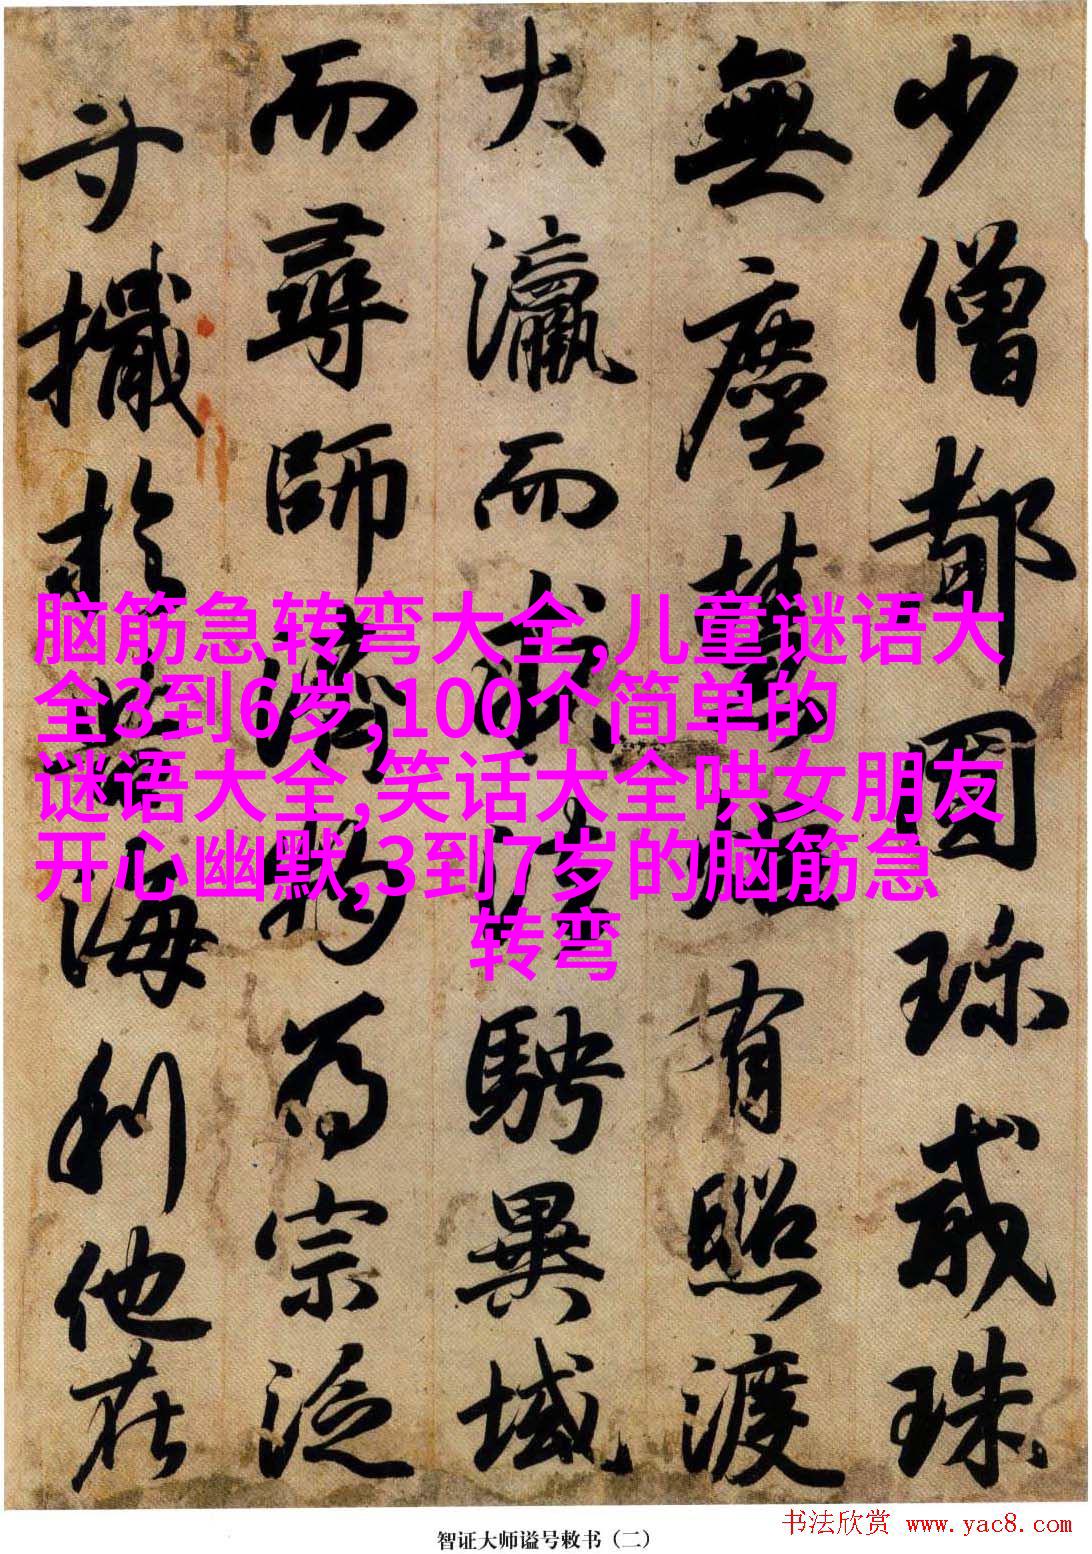 少僧都圓珍戒珠
無塵慧炬有照渡
大瀛而求法騁異域
而尋師濟物為宗泛
舟檝於苦海利他在
脑筋急转弯大全,儿童谜语大
全3到6岁,100个简单的
谜语大全,笑话大全哄女朋友
开心幽默,3到7岁的脑筋急
转弯
智证大师谥号敕书（二）
书法欣赏 www.yac8.com